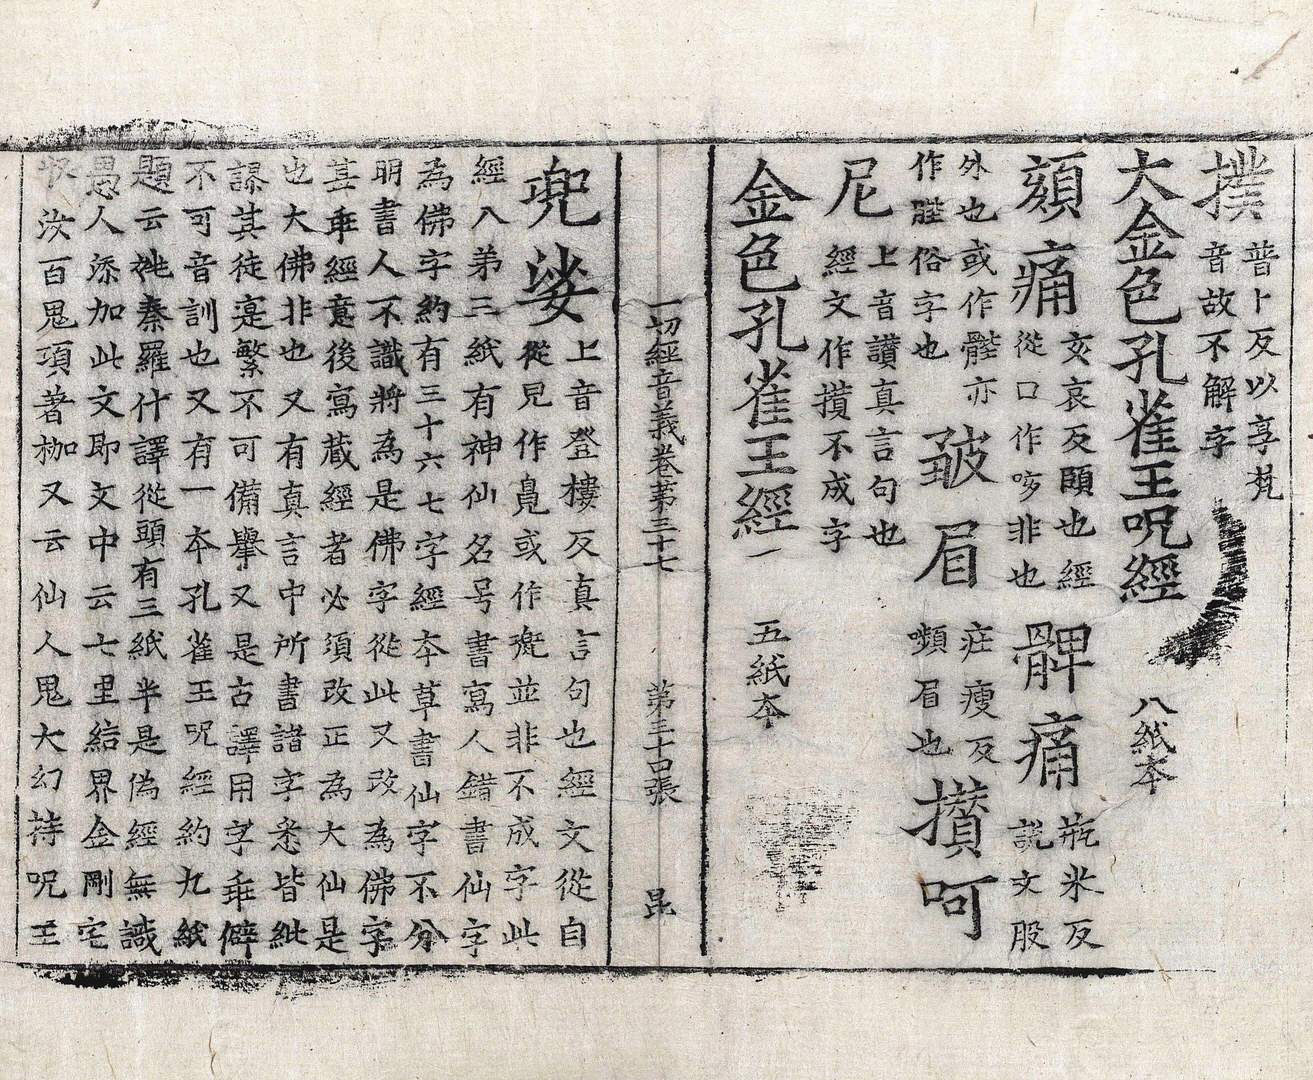 撲普卜反以享梵
音故不解字
大金色孔雀王呪經 八紙本
頦痛亥哀反頤也經
從口作咳非也
髀痛䯗米反
説文股
外也或作䏶亦
作䏶俗字也
皴眉疘瘦反
嚬眉也
攢呵
尼上音讃真言句也
經文作攅不成字
金色孔雀王經一 五紙本
一切經音義卷苐三十七 苐三十四張 昆
兜娑上音登樓反真言句也經文從自
從見作㒵或作兠並非不成字此
經入弟三紙有神仙名号書寫人錯書仙字
為佛字約有三十六七字經夲草書仙字不分
明書人不識將為是佛字從此又改為佛字
甚乖經意後寫蔵經者必須改正為大仙是
也大佛非也又有真言中所書諸字悉皆紕
謬其徒寔繁不可備舉又是古譯用字乖僻
不可音訓也又有一夲孔雀王呪經約九紙
題云姚秦羅什譯從頭有三紙半是偽經無識
愚人添加此文即文中云七里結界金剛宅
汝百鬼項著枷又云仙人鬼大幻持呪王